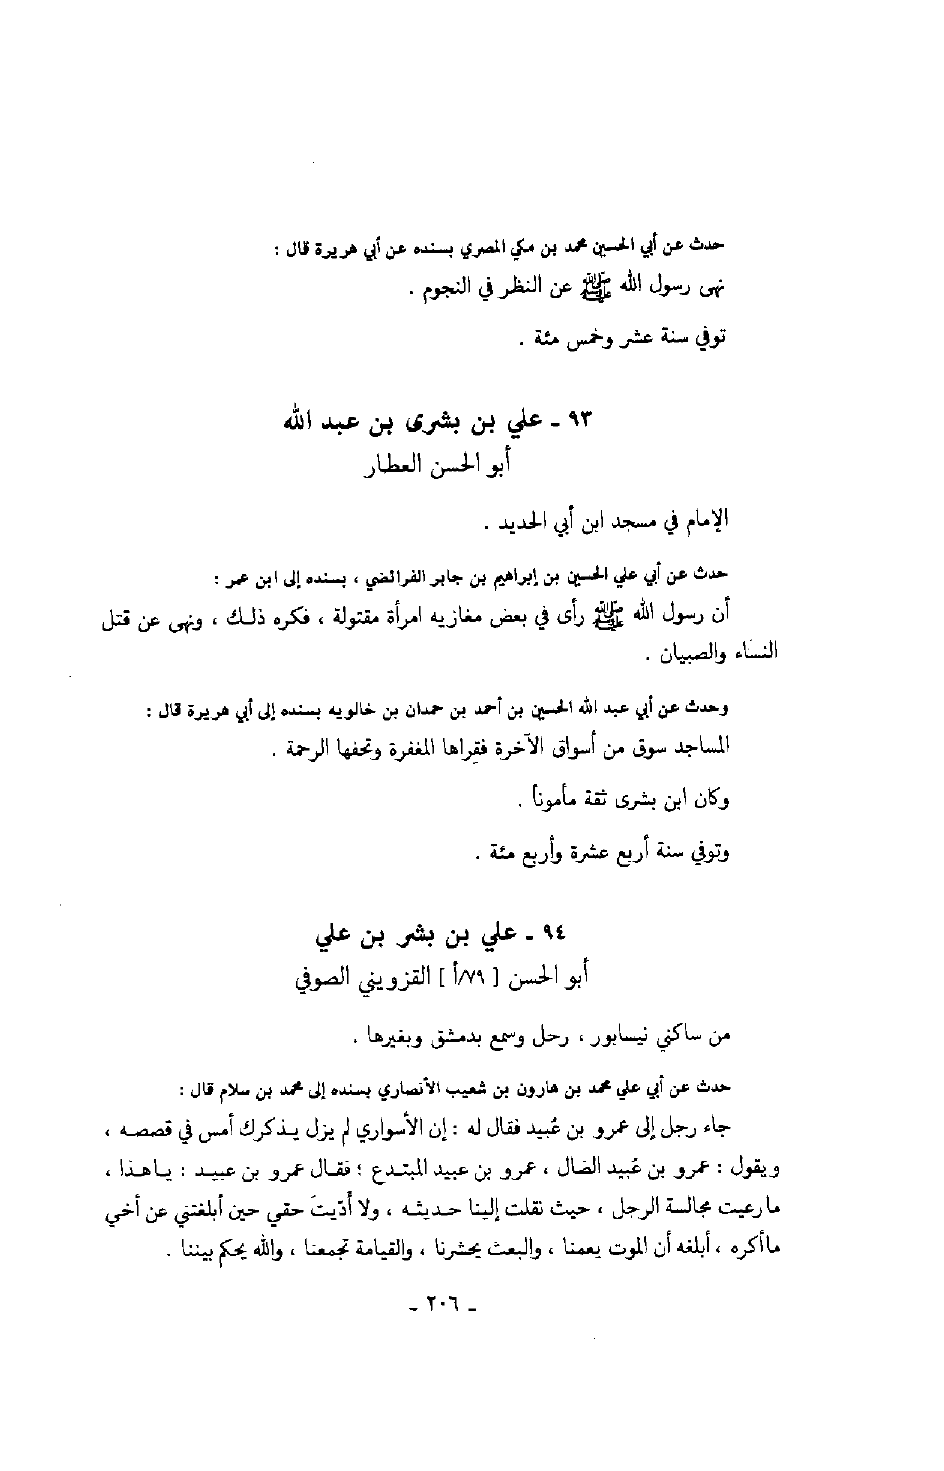 حدث عن أبي الحسين محمد بن مكي المصري بسنده عن أبي هريرة قال :
نهى رسول الله ﷺ عن النظر في النجوم .
توفي سنة عشر وخمس مئة .
٩٣ ـ علي بن بشرى بن عبد الله
أبو الحسن العطار
الإمام في مسجد ابن أبي الحديد .
حدث عن أبي علي الحسين بن إبراهيم بن جابر الفرائضي ، بسنده إلى ابن عمر :
أن رسول الله ﷺ رأى في بعض مغازيه امرأة مقتولة ، فكره ذلك ، ونهى عن قتل
النساء والصبيان .
وحدث عن أبي عبد الله الحسين بن أحمد بن حمدان بن خالويه بسنده إلى أبي هريرة قال :
المساجد سوق من أسواق الآخرة فقِراها المغفرة وتحفها الرحمة .
وكان ابن بشرى ثقة مأموناً .
وتوفي سنة أربع عشرة وأربع مئة .
٩٤ ـ علي بن بشر بن علي
أبو الحسن [ ٧٩/أ ] القزويني الصوفي
من ساكني نيسابور ، رحل وسمع بدمشق وبغيرها .
حدث عن أبي علي محمد بن هارون بن شعيب الأنصاري بسنده إلى محمد بن سلام قال :
جاء رجل إلى عمرو بن عُبيد فقال له : إن الأسواري لم يزل يذكرك أمس في قصصه ،
ويقول : عمرو بن عُبيد الضال ، عمرو بن عبيد المبتدع ؛ فقال عمرو بن عبيد : ياهذا ،
مارعيت مجالسة الرجل ، حيث نقلت إلينا حديثه ، ولا أدّيتَ حقي حين أبلغتني عن أخي
ماأكره ، أبلغه أن الموت يعمنا ، والبعث يحشرنا ، والقيامة تجمعنا ، والله يحكم بيننا .
ـ ٢٠٦ ـ